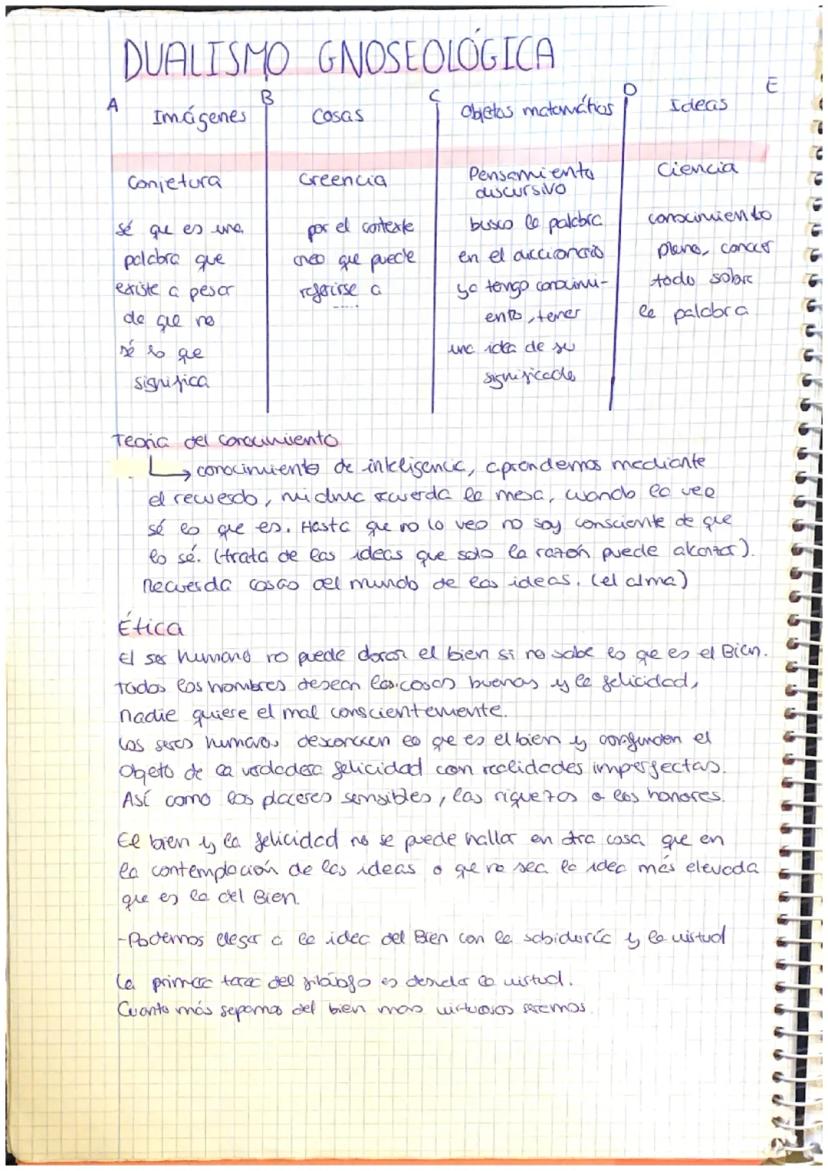 DUALISMO GNOSEOLÓGICA
A B C D E
Imágenes
Cosas
Objetos matemáticos
Ideas
Conjetura
Creencia
Pensamiento
discursivo
Ciencia
sé que es una
palabra que
existe a pesar
de que no
sé lo que
significa
por el contexto
creo que puede
referirse a
.....
busco la palabra
en el diccionario
ya tengo conocimi-
ento, tener
una idea de su
significado
conocimiento
pleno, conocer
todo sobre
la palabra
Teoría del conocimiento
↳ conocimiento de inteligencia, aprendemos mediante
el recuerdo, mi alma recuerda la mesa, cuando la veo
sé lo que es. Hasta que no lo veo no soy consciente de que
lo sé. (trata de las ideas que solo la razón puede alcanzar).
Recuerda cosas del mundo de las ideas. (el alma)
Ética
El ser humano no puede el bien si no sabe lo que es el Bien.
Todos los hombres desean las cosas buenas y la felicidad,
nadie quiere el mal conscientemente.
Los seres humanos desconocen lo que es el bien y confunden el
Objeto de la verdadera felicidad con realidades imperfectas.
Así como los placeres sensibles, las riquezas o los honores.
El bien y la felicidad no se puede hallar en otra cosa que en
la contemplación de las ideas o que no sea la idea más elevada
que es la del Bien.
-Podemos llegar a la idea del Bien con la sabiduría y la virtud
La primera tarea del filósofo es la virtud.
Cuanto más sepamos del bien mas virtuosos seremos.